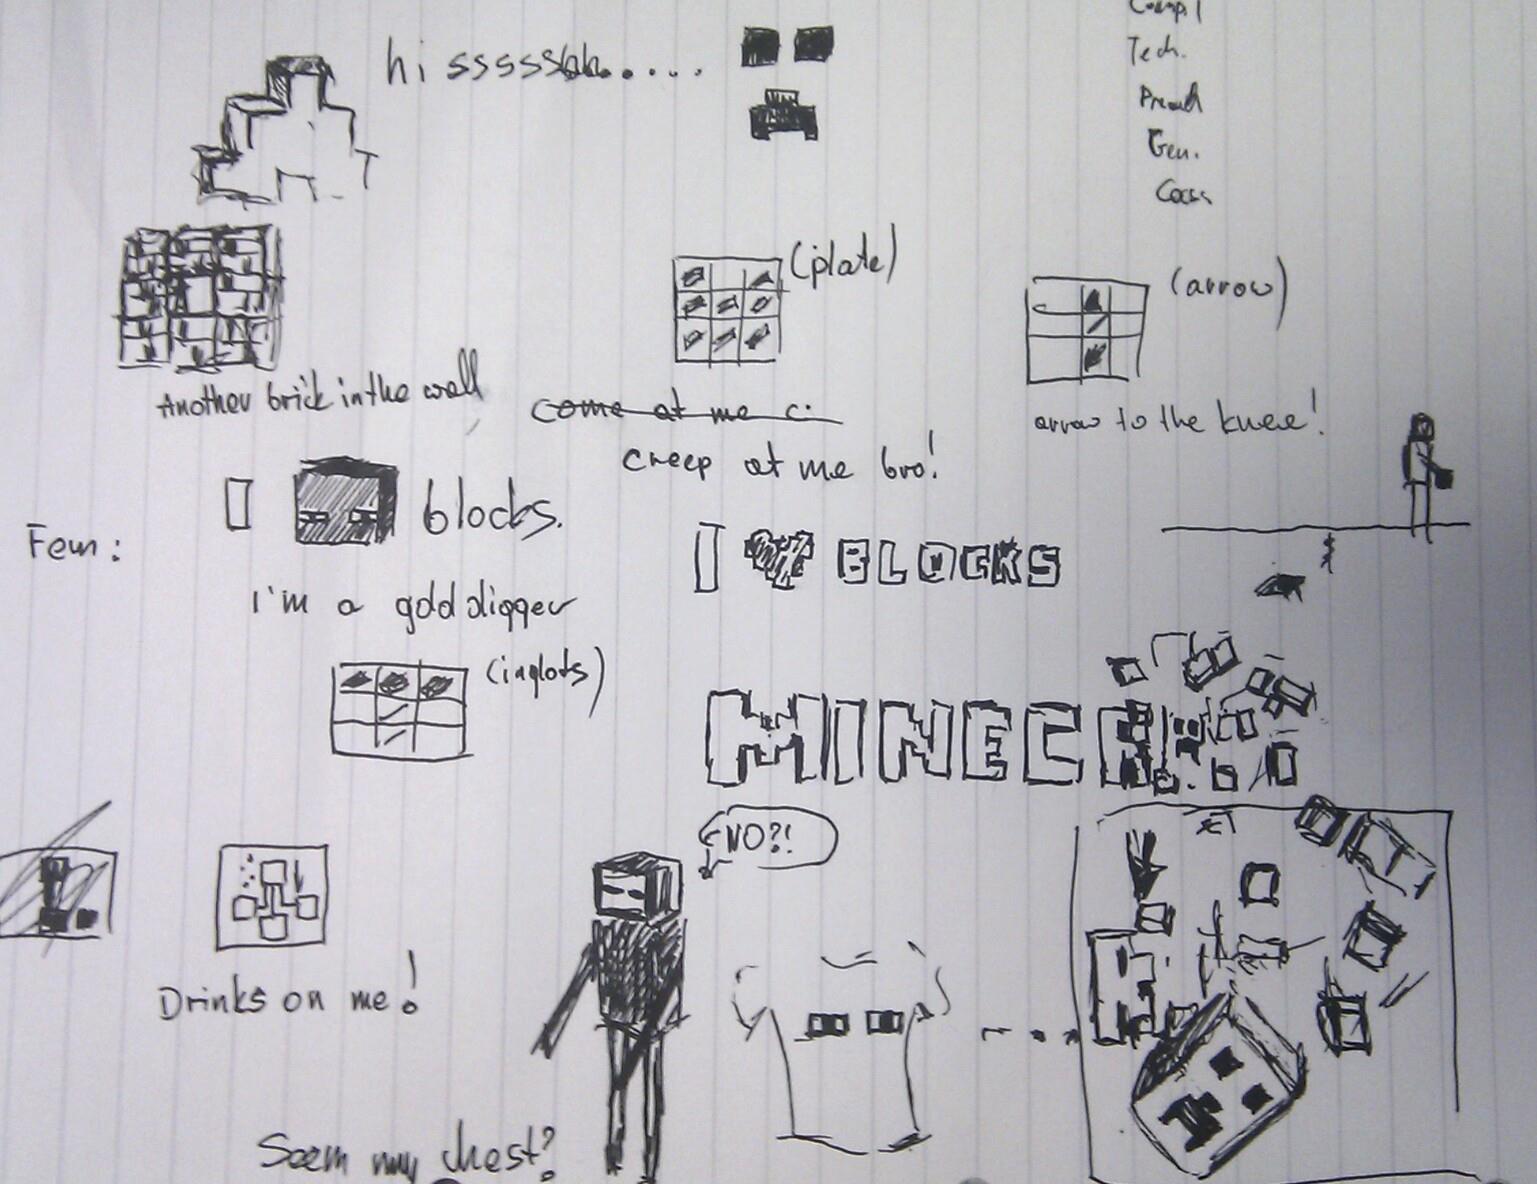 Tech.
Gen.
(plate)
(arrow)
Another brick in the wall
come at me c.
arrow to the knee!
creep at me bro!
blocks.
Fem:
I BLOCKS
I'm a gold digger
(inglots)
MINECR
NO?!
Drinks on me!
Seem my chest?